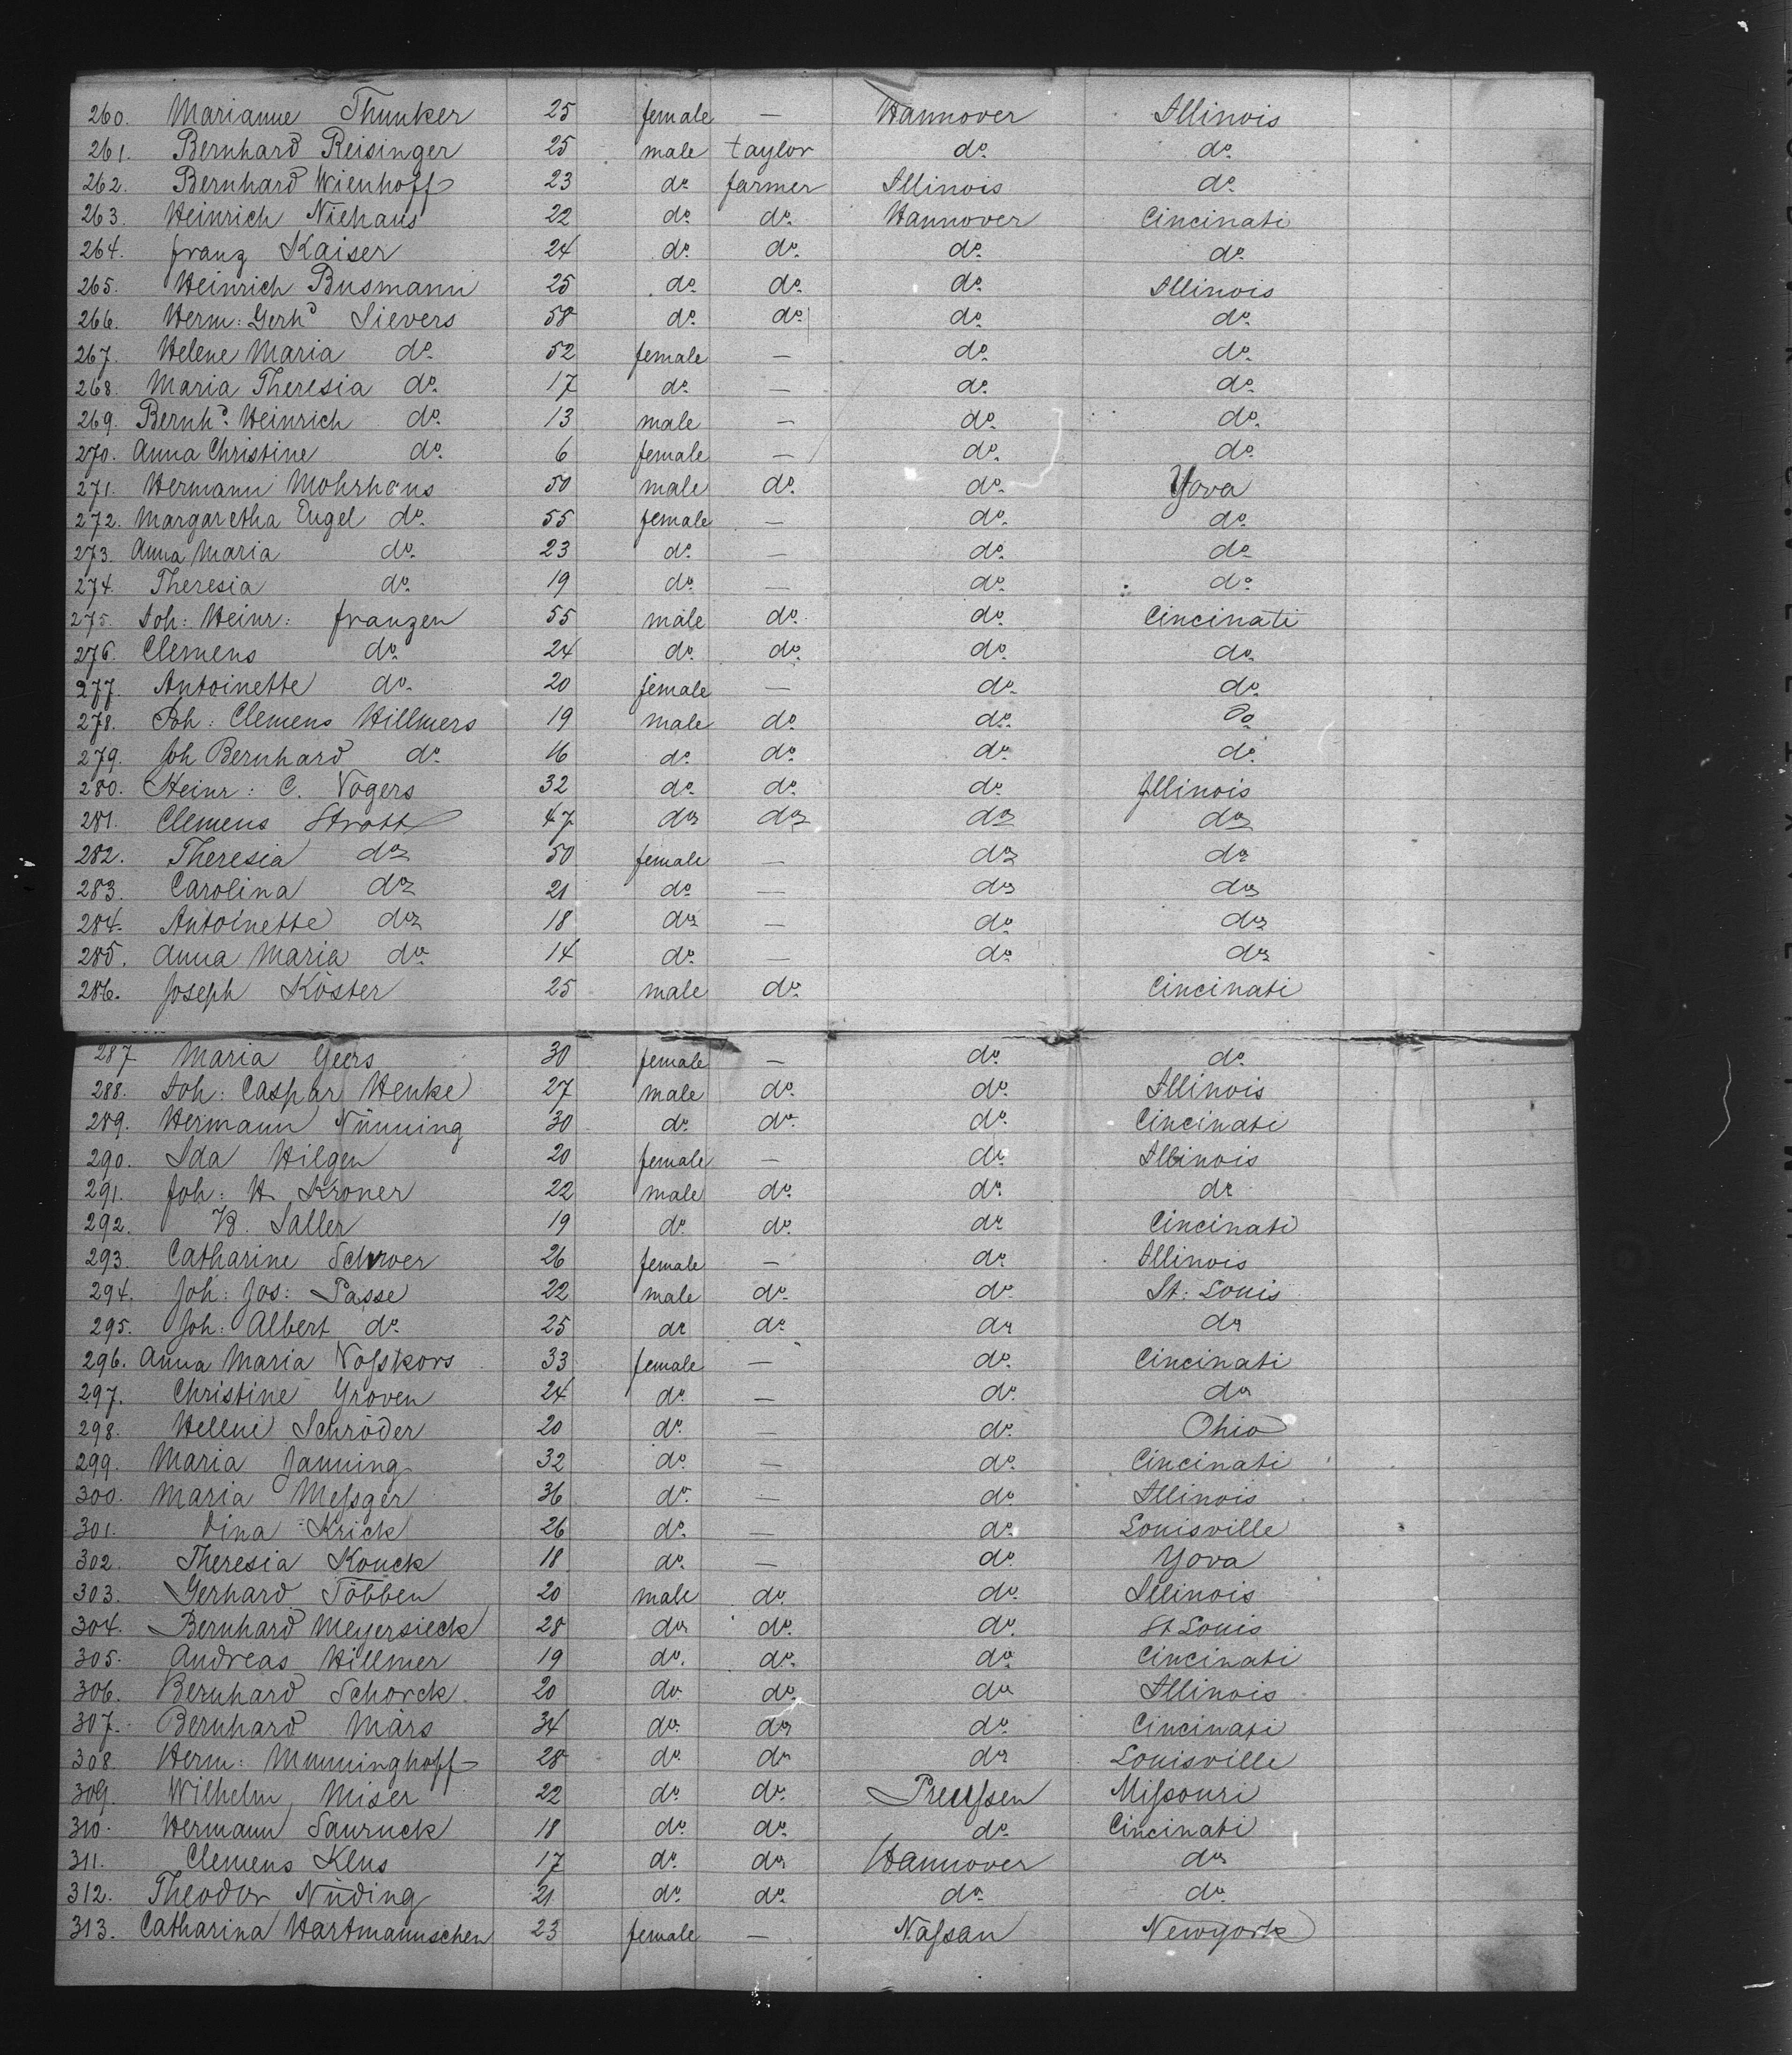 260. Marianne Thunker 25 female — Hannover Illinois
261. Bernhard Reisinger 25 male taylor do. do.
262. Bernhard Wienhoff 23 do. farmer Illinois do.
263. Heinrich Niehaus 22 do. do. Hannover Cincinati
264. franz Kaiser 24 do. do. do. do.
265. Heinrich Busmann 25 do. do. do. Illinois
266. Herm: Gerhd Sievers 58 do. do. do. do.
267. Helene Maria do. 52 female — do. do.
268. Maria Theresia do. 17 do. — do. do.
269. Bernhd. Heinrich do. 13 male — do. do.
270. Anna Christine do. 6 female — do. do.
271. Hermann Mohrhaus 50 male do. do. Yova
272. Margaretha Engel do. 55 female — do. do.
273. Anna Maria do. 23 do. — do. do.
274. Theresia do. 19 do. — do. do.
275. Joh: Heinr: franzen 55 male do. do. Cincinati
276. Clemens do. 24 do. do. do. do.
277. Antoinette do. 20 female — do. do.
278. Joh: Clemens Hillmers 19 male do. do. do
279. Joh Bernhard do. 16 do. do. do. do.
280. Heinr: C. Vogers 32 do. do. do. Illinois
281. Clemens Strott 47 do. do. do. do.
282. Theresia do. 50 female — do. do.
283. Carolina do. 21 do. — do. do.
284. Antoinette do. 18 do. — do. do.
285. Anna Maria do. 14 do. — do. do.
286. Joseph Köster 25 male do. Cincinati
287 Maria Geers 30 female — do. do.
288. Joh: Caspar Henke 27 male do. do. Illinois
289. Hermann Nünning 30 do. do. do. Cincinati
290. Ida Hilgen 20 female — do. Illinois
291. Joh: H. Kroner 22 male do. do. do
292. B. Saller 19 do. do. do Cincinati
293. Catharine Schroer 26 female — do Illinois
294. Joh: Jos: Passe 22 male do. do. St: Louis
295. Joh: Albert do. 25 do do do do
296. Anna Maria Voßkors 33 female — do. Cincinati
297. Christine Groven 24 do. — do. do
298. Helleni Schröder 20 do. — do. Ohio
299. Maria Janning 32 do. — do. Cincinati
300. Maria Meßger 36 do. — do Illinois
301. Dina Krick 26 do. — do. Louisville
302. Theresia Konck 18 do. — do. Yova
303. Gerhard Többen 20 male do. do. Illinois
304. Bernhard Meyersieck 28 do do. do. St Louis
305. Andreas Hillmer 19 do. do. do. Cincinati
306. Bernhard Schorck 20 do do. do Illinois
307. Bernhard Märs 34 do. do do. Cincinati
308. Herm: Mumminghoff 28 do. do do Louisville
309. Wilhelm Miser 22 do. do. Preußen Mißouri
310. Hermann Sauruck 18 do. do. do. Cincinati
311. Clemens Klus 17 do. do Hannover do
312. Theodor Nüding 21 do. do. do. do.
313. Catharina Hartmannschen 23 female — Naßau Newyork